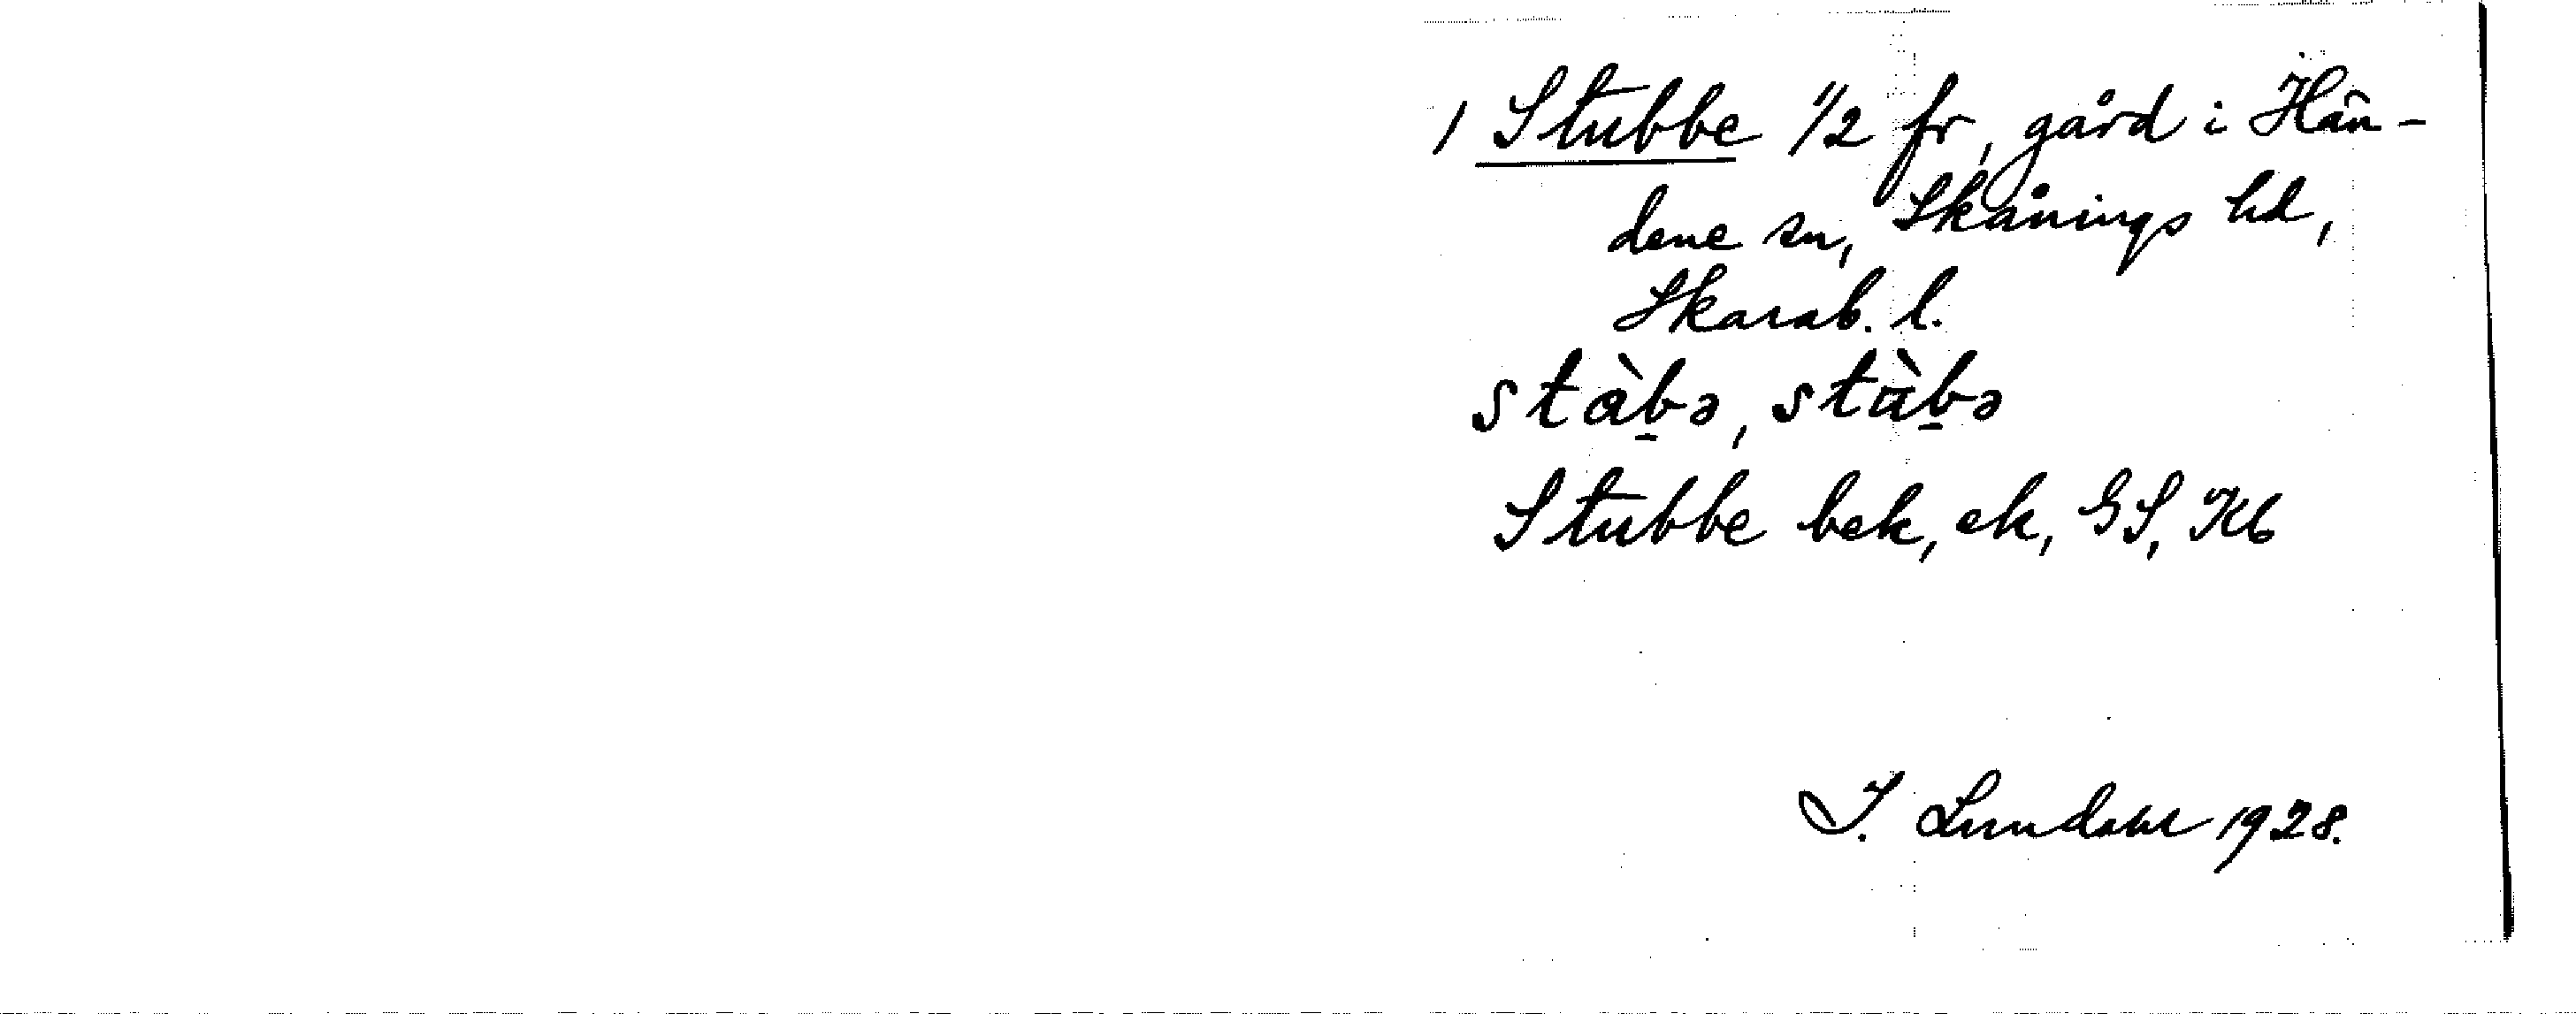 1 Stubbe 1/2 fr, gård i Hän-
dene sn, Skånings hd,
Skarab. l.
stàb̠ə, stàb̠ə
Stubbe bek, ek, GS, Kb
I. Lundahl 1928.